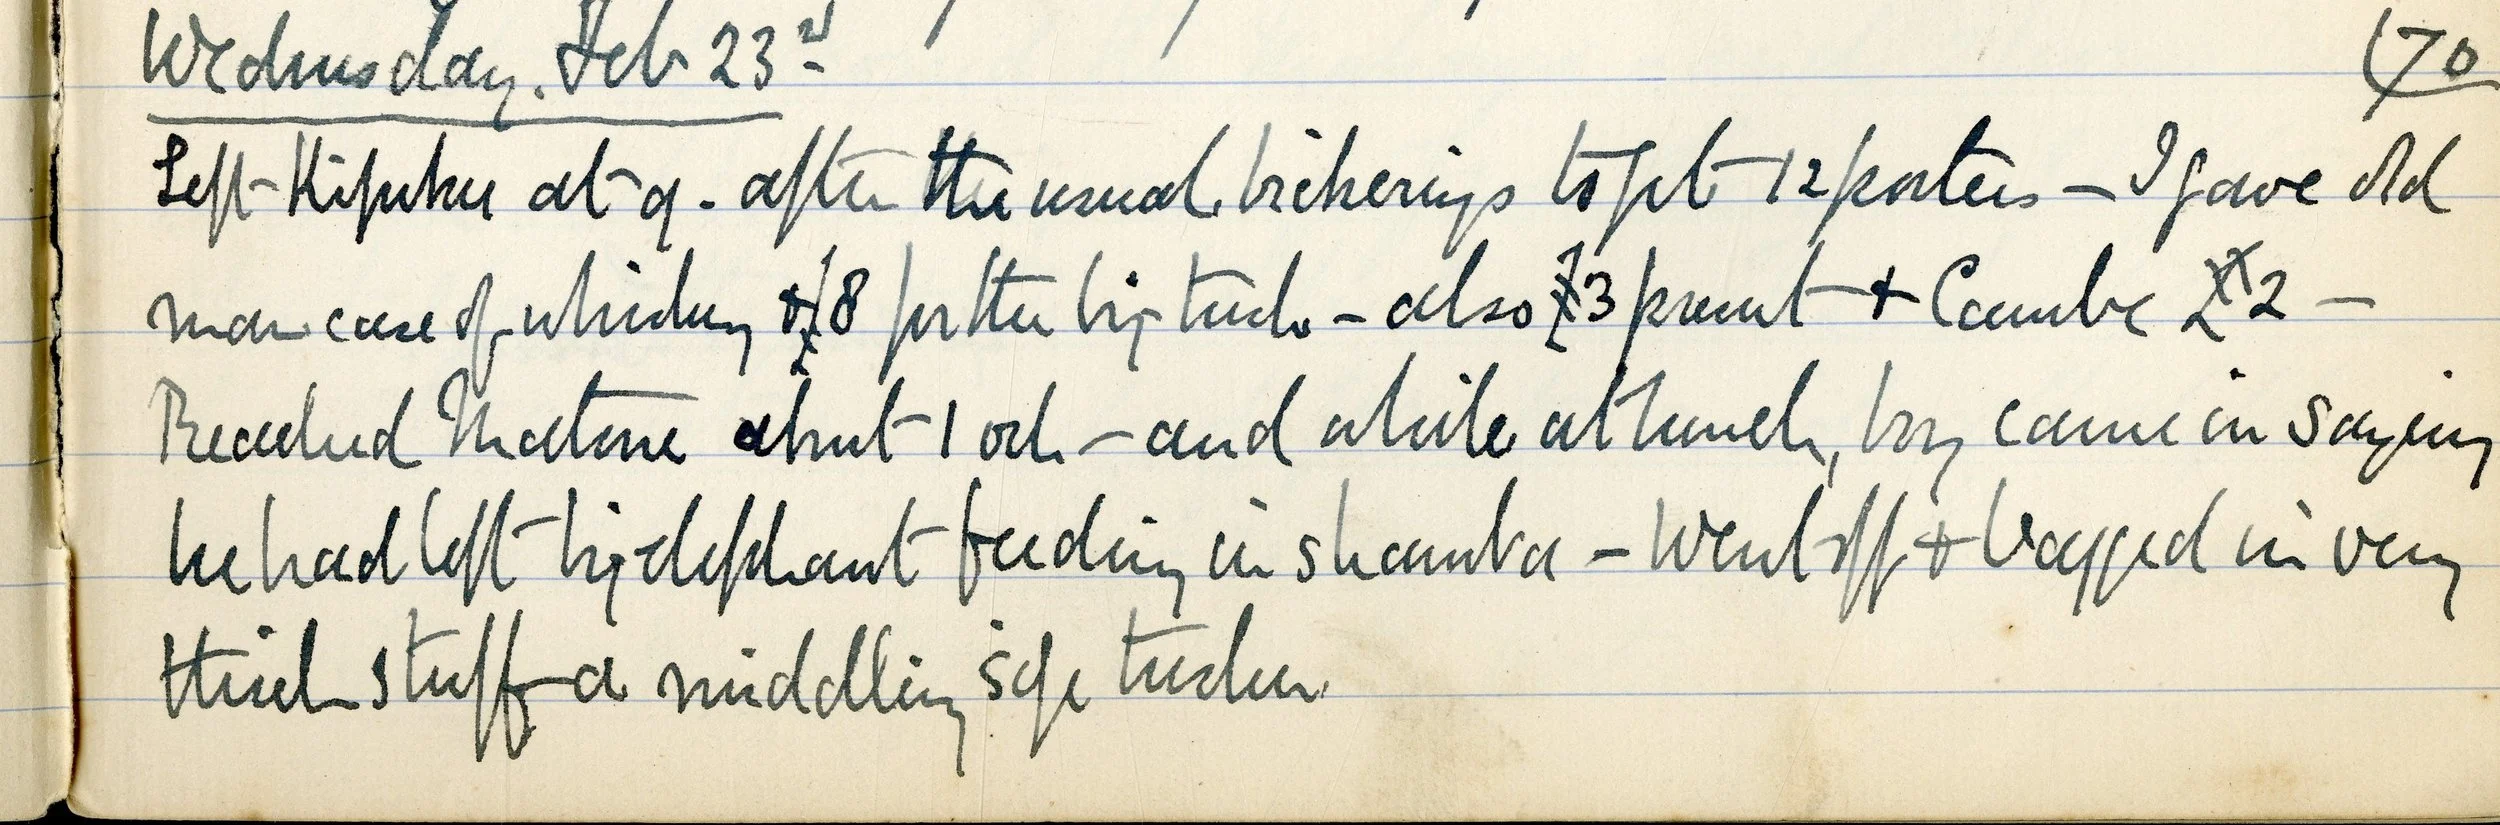 Wednesday. Feb 23rd
(70
Left Kipuku at 9. after the usual bickerings to get 12 porters – I gave old
man case of whiskey & £8 for the big tusk. – also £3 present + Cambe 2 –
Reached Matone about 1 ock – and while at lunch, boy came in saying
he had left big elephant feeding in shamba – Went off + bagged in very
thick stuff a middling size tusker